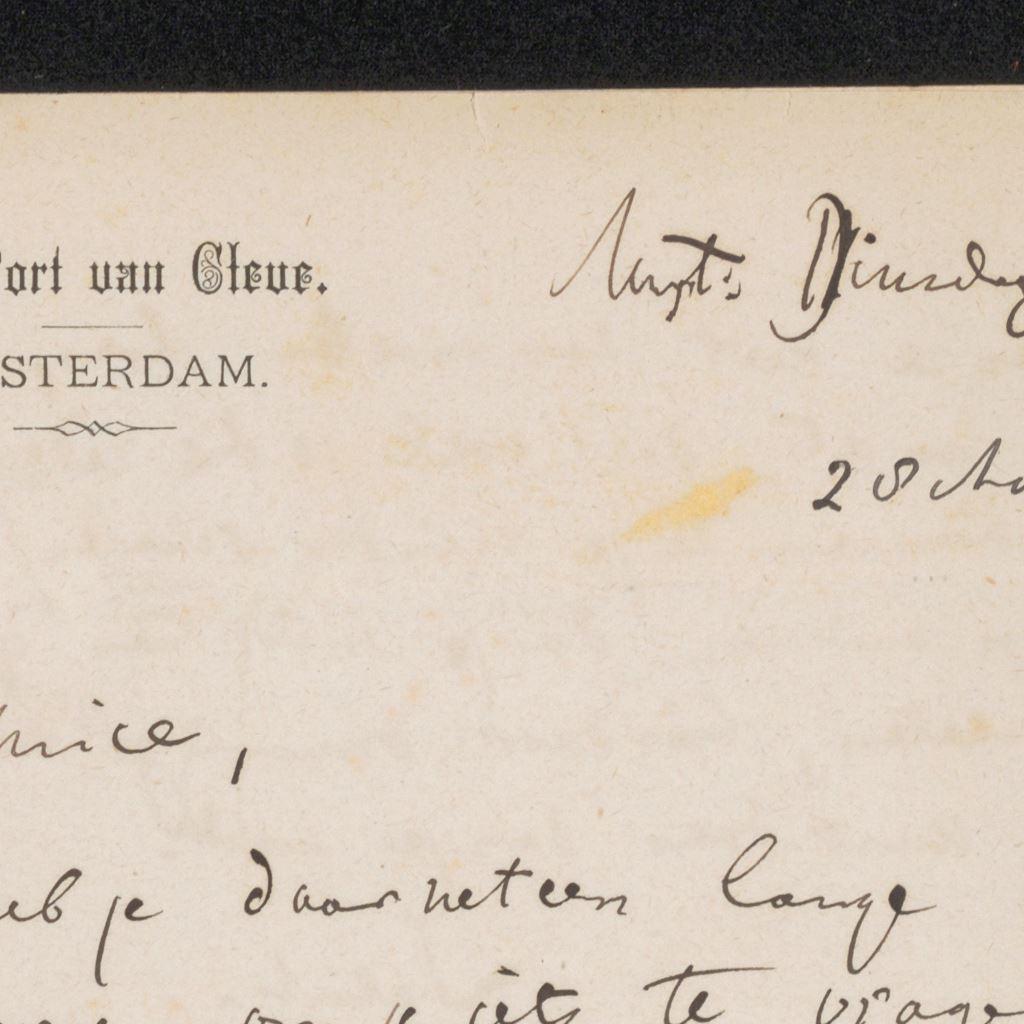 ort van Cleve.
STERDAM.
Dinsdag
28
mice,
eb je daarnet een lange
je iets te vrage